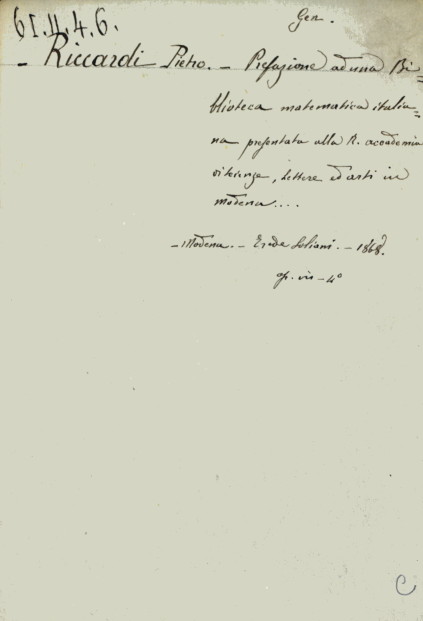 61.4.4.6.
Gen.
- Riccardi Pietro. - Prefazione ad una Bi=
blioteca matematica italia=
na presentata alla R. accademia
di scienze, lettere ed arti in
Modena....
- Modena. - Erede Soliani. - 1868.
op. vis - 4°
C